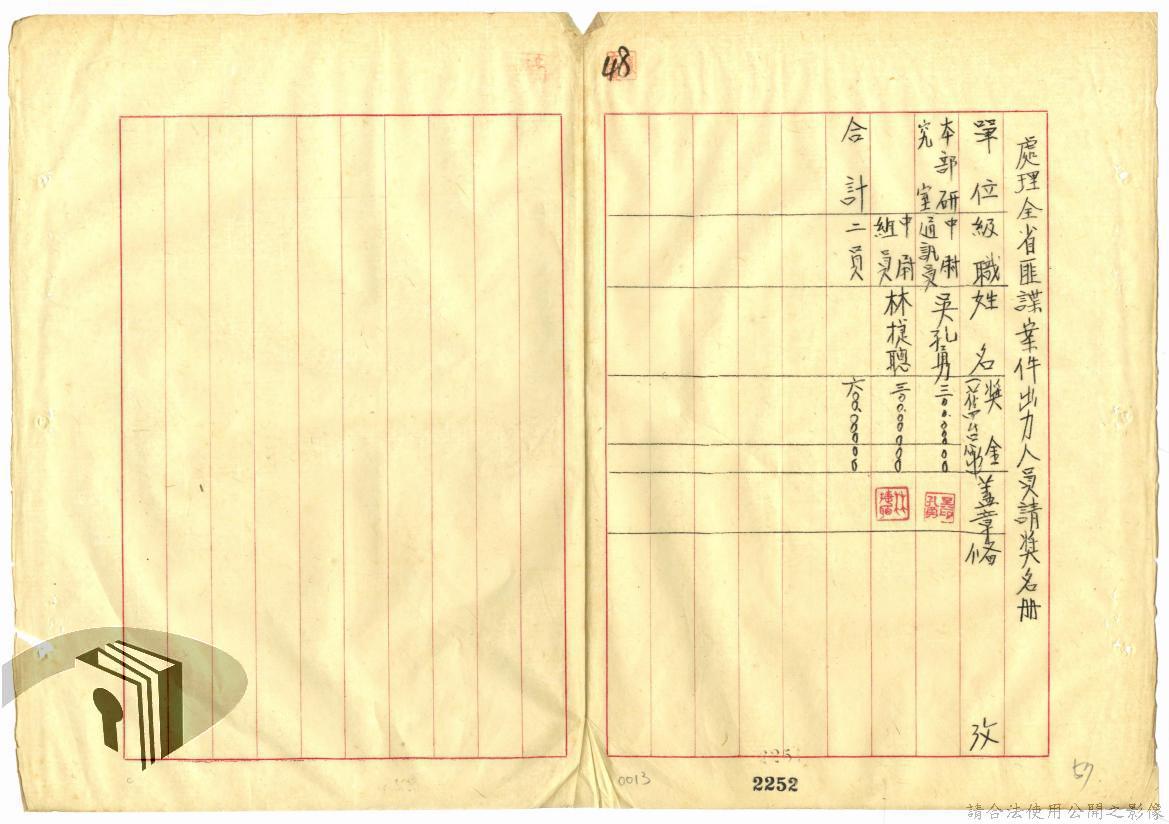 48
處理全省匪諜案件出力人員請獎名册
單位
級職
姓名
獎金
蓋章
備攷
本部研究室
中尉通訊員
吳孔勇
三〇〇.〇〇〇〇〇
中尉組員
林捷聰
三〇〇.〇〇〇〇〇
合計
二員
六〇〇.〇〇〇〇〇
0013
2252
57
請合法使用公開之影像